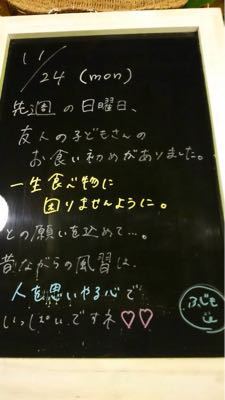 11/24 (mon)
先週の日曜日、
友人の子どもさんの
お食い初めがありました。
一生食べ物に
困りませんように。
との願いを込めて…。
昔ながらの風習は、
人を思いやる心で
いっぱいですネ♡♡